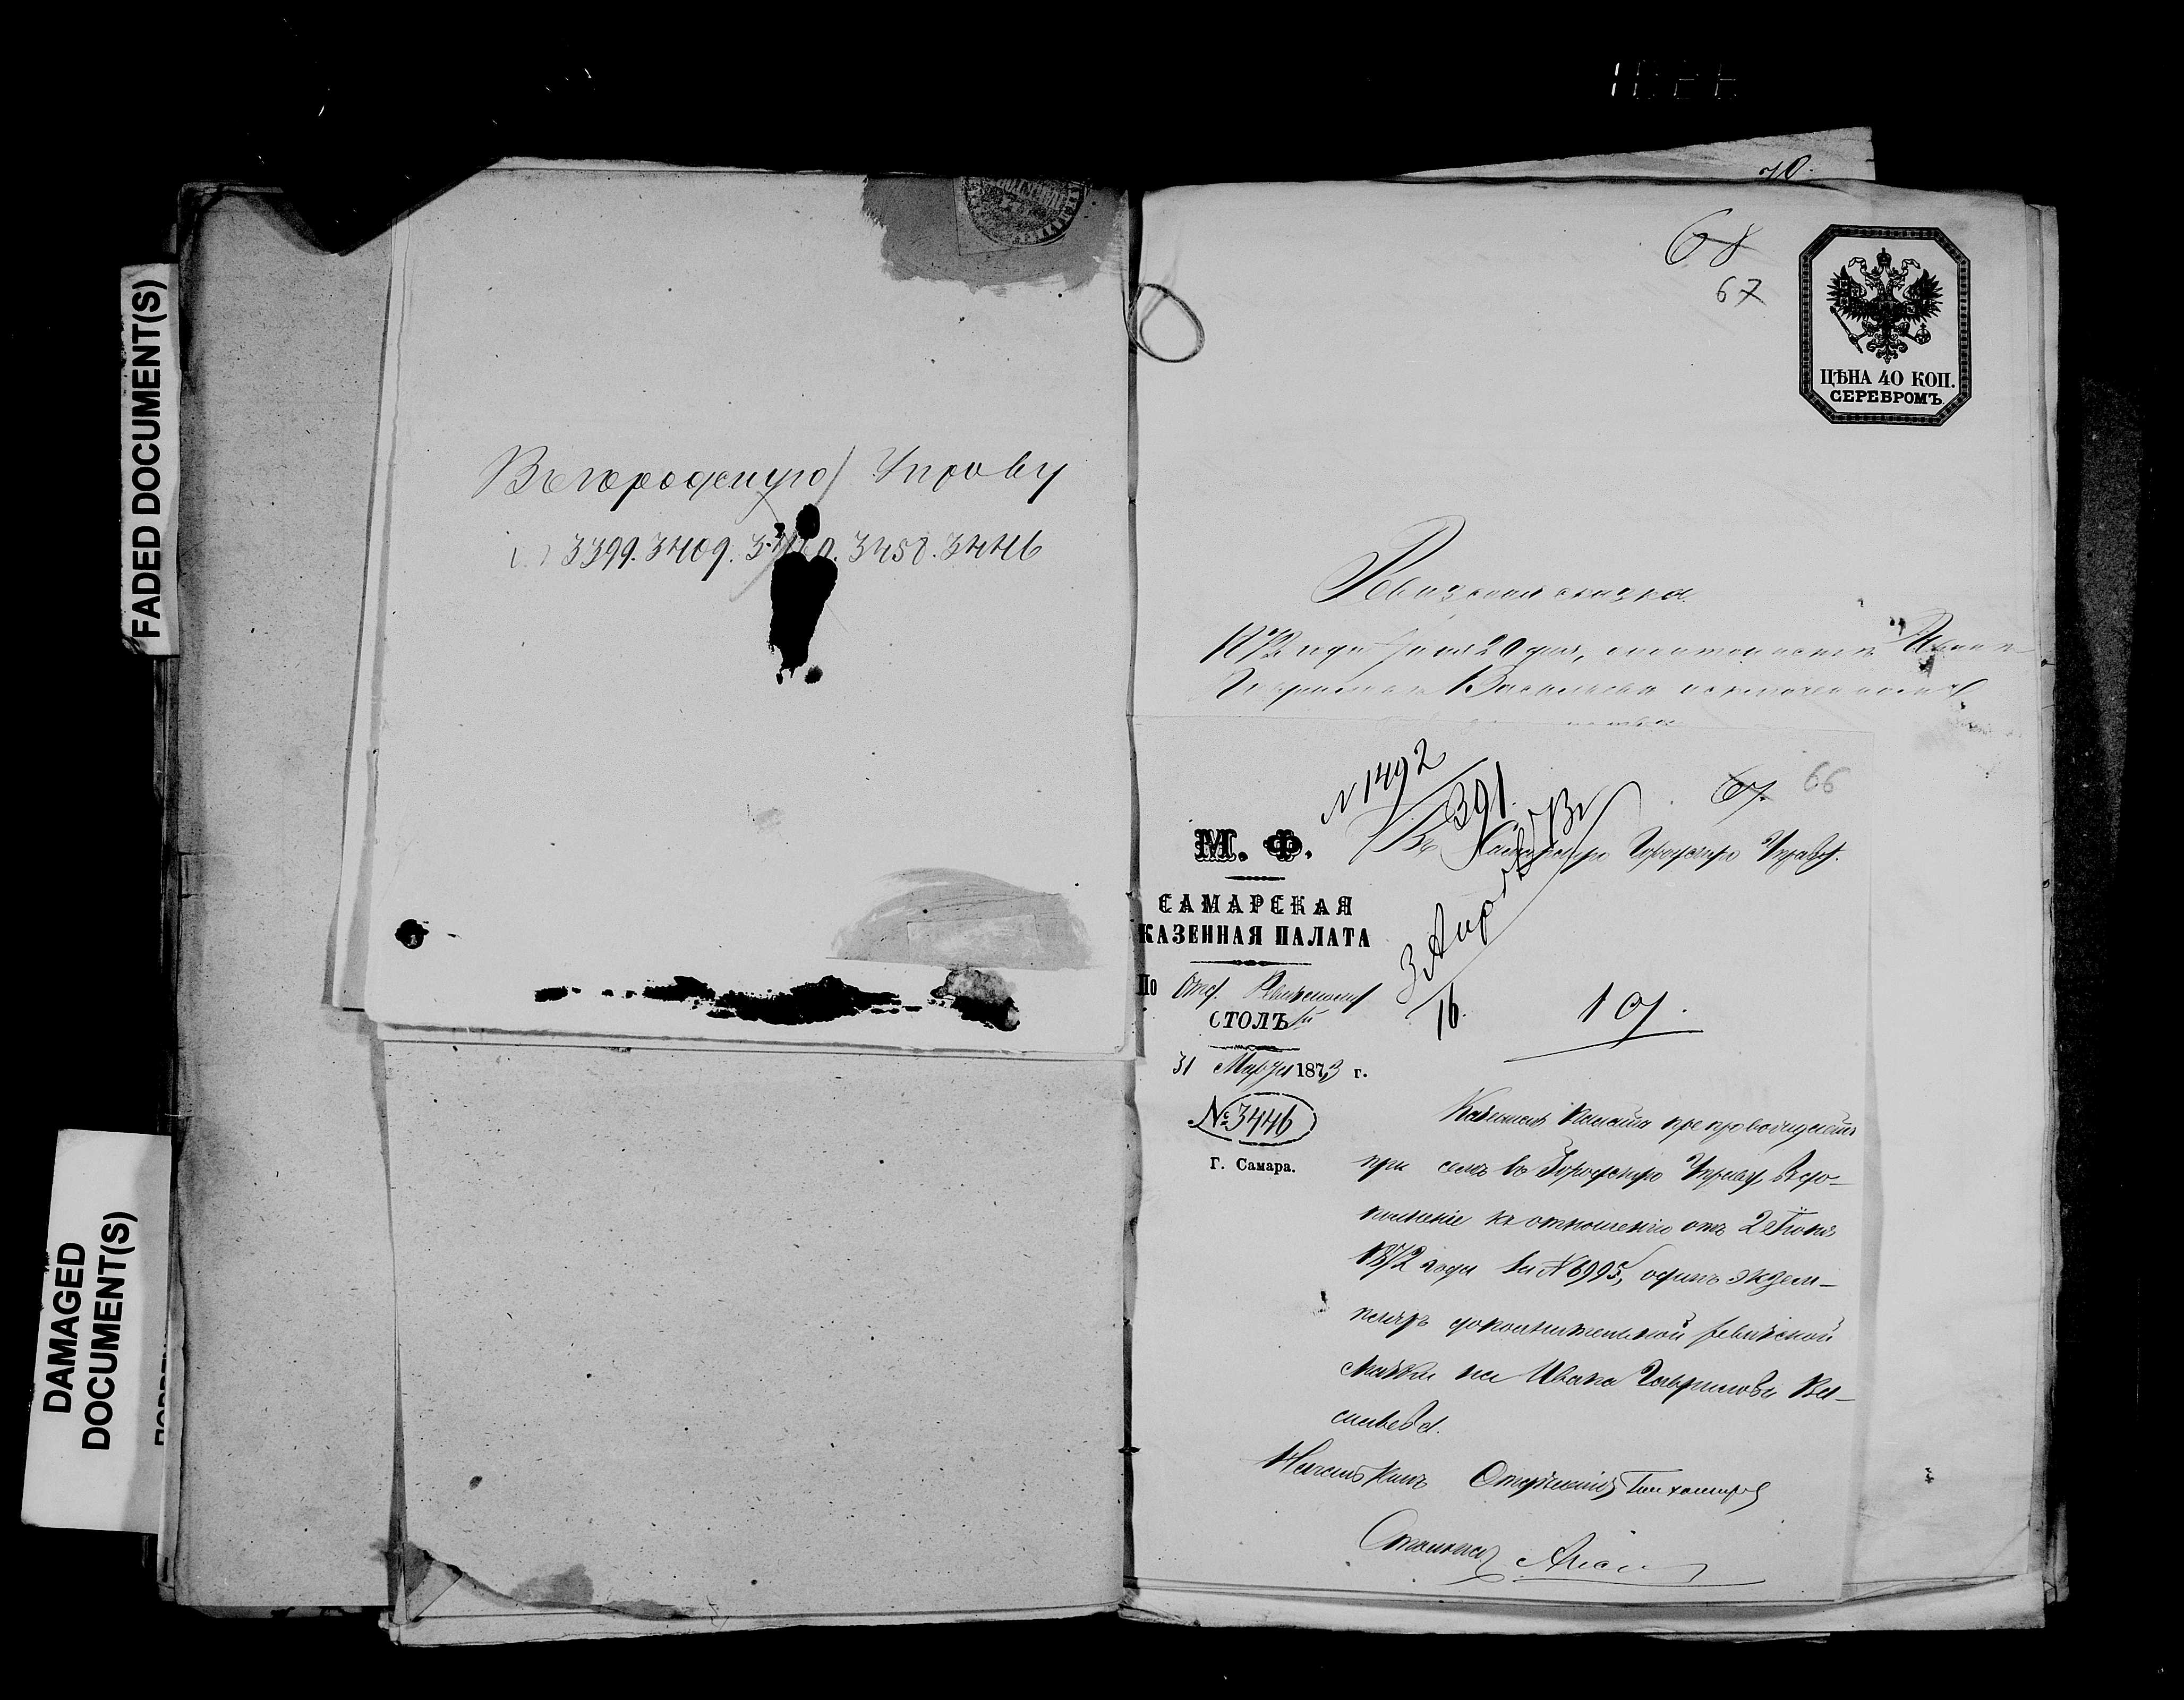 FADED DOCUMENT(S)
DAMAGED
DOCUMENT(S)
Въ городскую Управу
3399. 3409. 3458. 3446
70.
68
67
ЦѢНА 40 КОП.
СЕРЕБРОМЪ.
Ревизская сказка
1872 года Іюля 20 дня, Ивана
Гаврилова Васильева
№ 1492
391.
67. 66
М. Ф.
Въ Самарскую Городскую Управу.
САМАРСКАЯ
КАЗЕННАЯ ПАЛАТА
По Отд. Ревизскому
СТОЛЪ
3 Апрѣля
16.
31 Марта 1873 г.
№ 3446
Г. Самара.
Казенная Палата препровождаетъ
при семъ въ Городскую Управу, въ до-
полненіе къ отношенію отъ 2 Іюня
1872 года за № 6995, одинъ экзем-
пляръ дополнительной ревизской
сказки на Ивана Гаврилова Ва-
сильева.
Начальникъ Отдѣленія Тихомиров
Столонач.